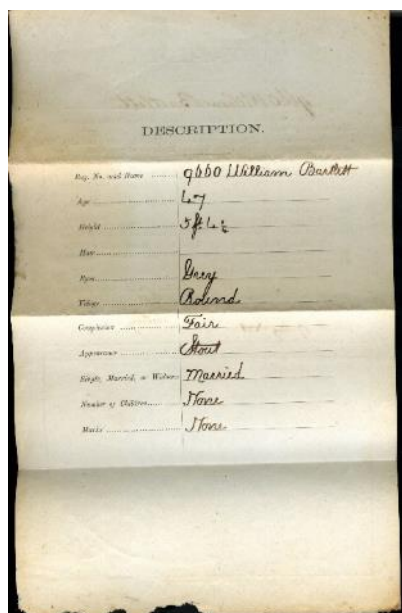 DESCRIPTION.
Reg. No. and Name 9660 William Bartlett
Age 47
Height 5 ft 4½
Hair
Eyes Grey
Visage Round
Complexion Fair
Appearance Stout
Single, Married, or Widower Married
Number of Children None
Marks None